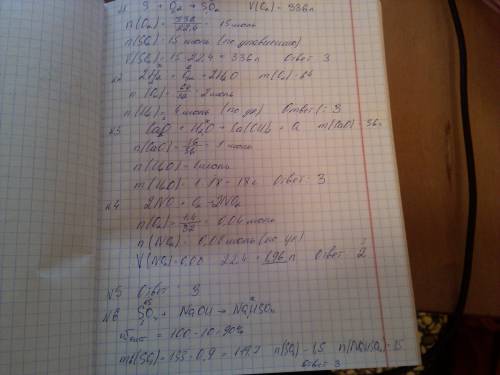 S + O₂ = SO₂ V(O₂) = 336л
n(O₂) = 336/22.4 = 15 моль
n(SO₂) = 15 моль (по уравнению)
V(SO₂) = 15 · 22.4 = 336л Ответ 3
n2 2H₂ + O₂ = 2H₂O m(O₂) = 64
n(O₂) = 64/32 = 2 моль
n(H₂) = 4 моль (по ур) Ответ: 3
n3 CaO + H₂O = Ca(OH)₂ m(CaO) = 56г
n(CaO) = 56/56 = 1 моль
n(H₂O) = 1 моль
m(H₂O) = 1·18 = 18г Ответ 3
n4 2NO + O₂ = 2NO₂
n(O₂) = 1.4/32 = 0,04 моль
n(NO₂) = 0,08 моль (по ур)
V(NO₂) = 0,08 22.4 = 1,96 л Ответ 2
N5 Ответ 3
N6 SO₂ + NaOH → NaHSO₃
= 100 - 10 = 90%
n(SO₂) = 1,5
ответ 3